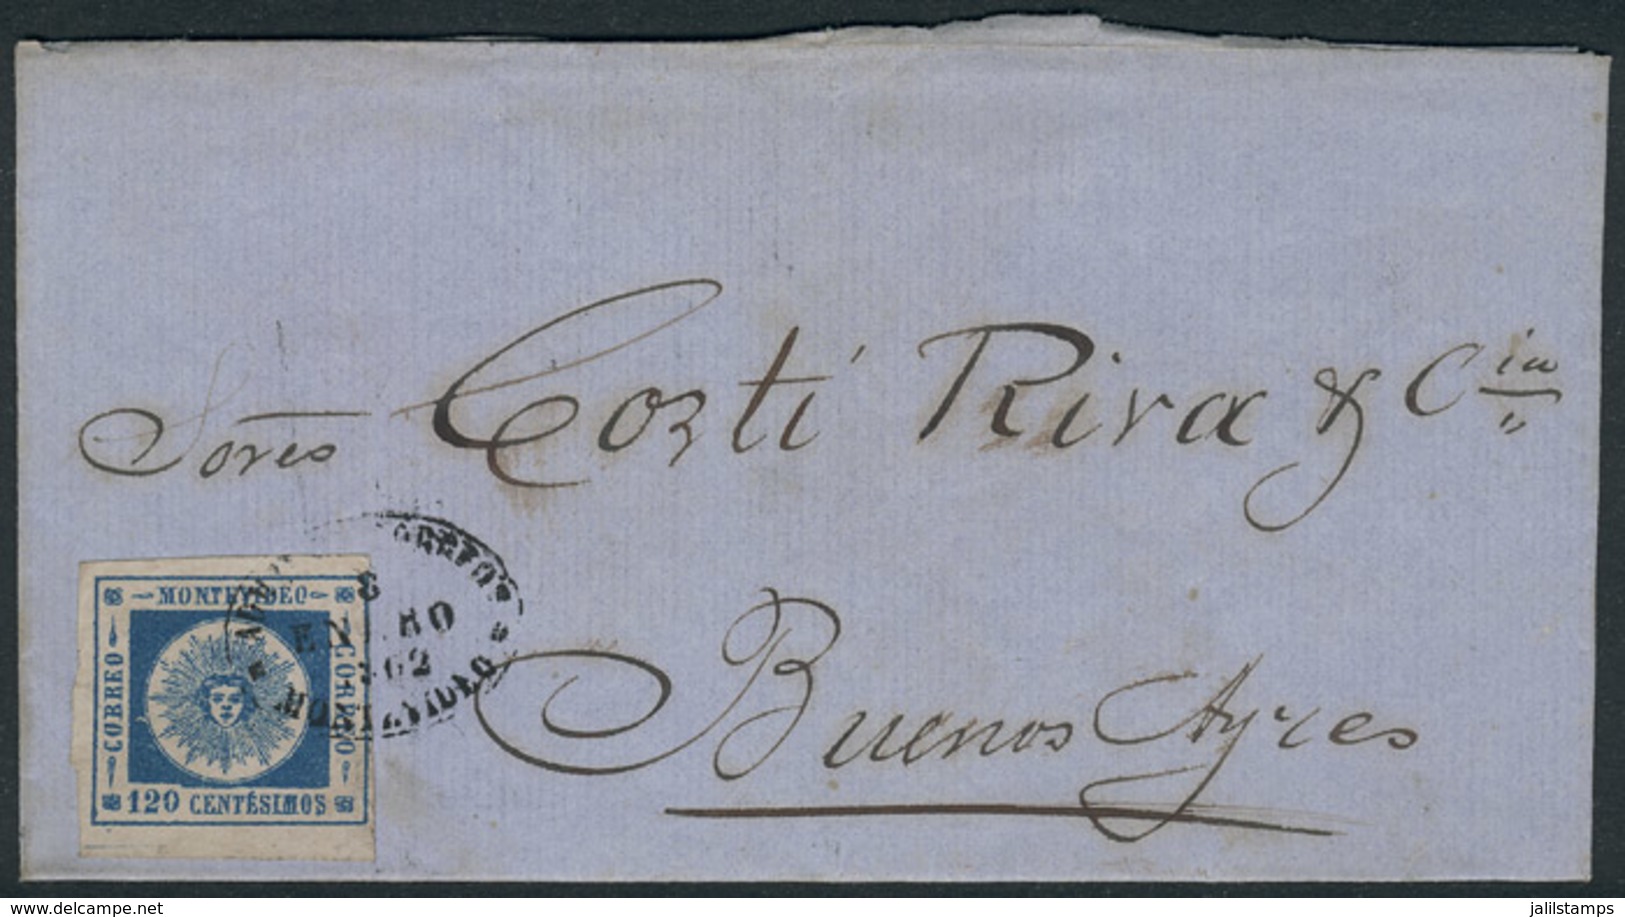 Sores Corti Riva & Cia
MONTEVIDEO
CORREO
CORREO
120 CENTÉSIMOS
CORREOS
ENERO
1862
MONTEVIDEO
Buenos Ayres
delcampe.net
jalilstamps